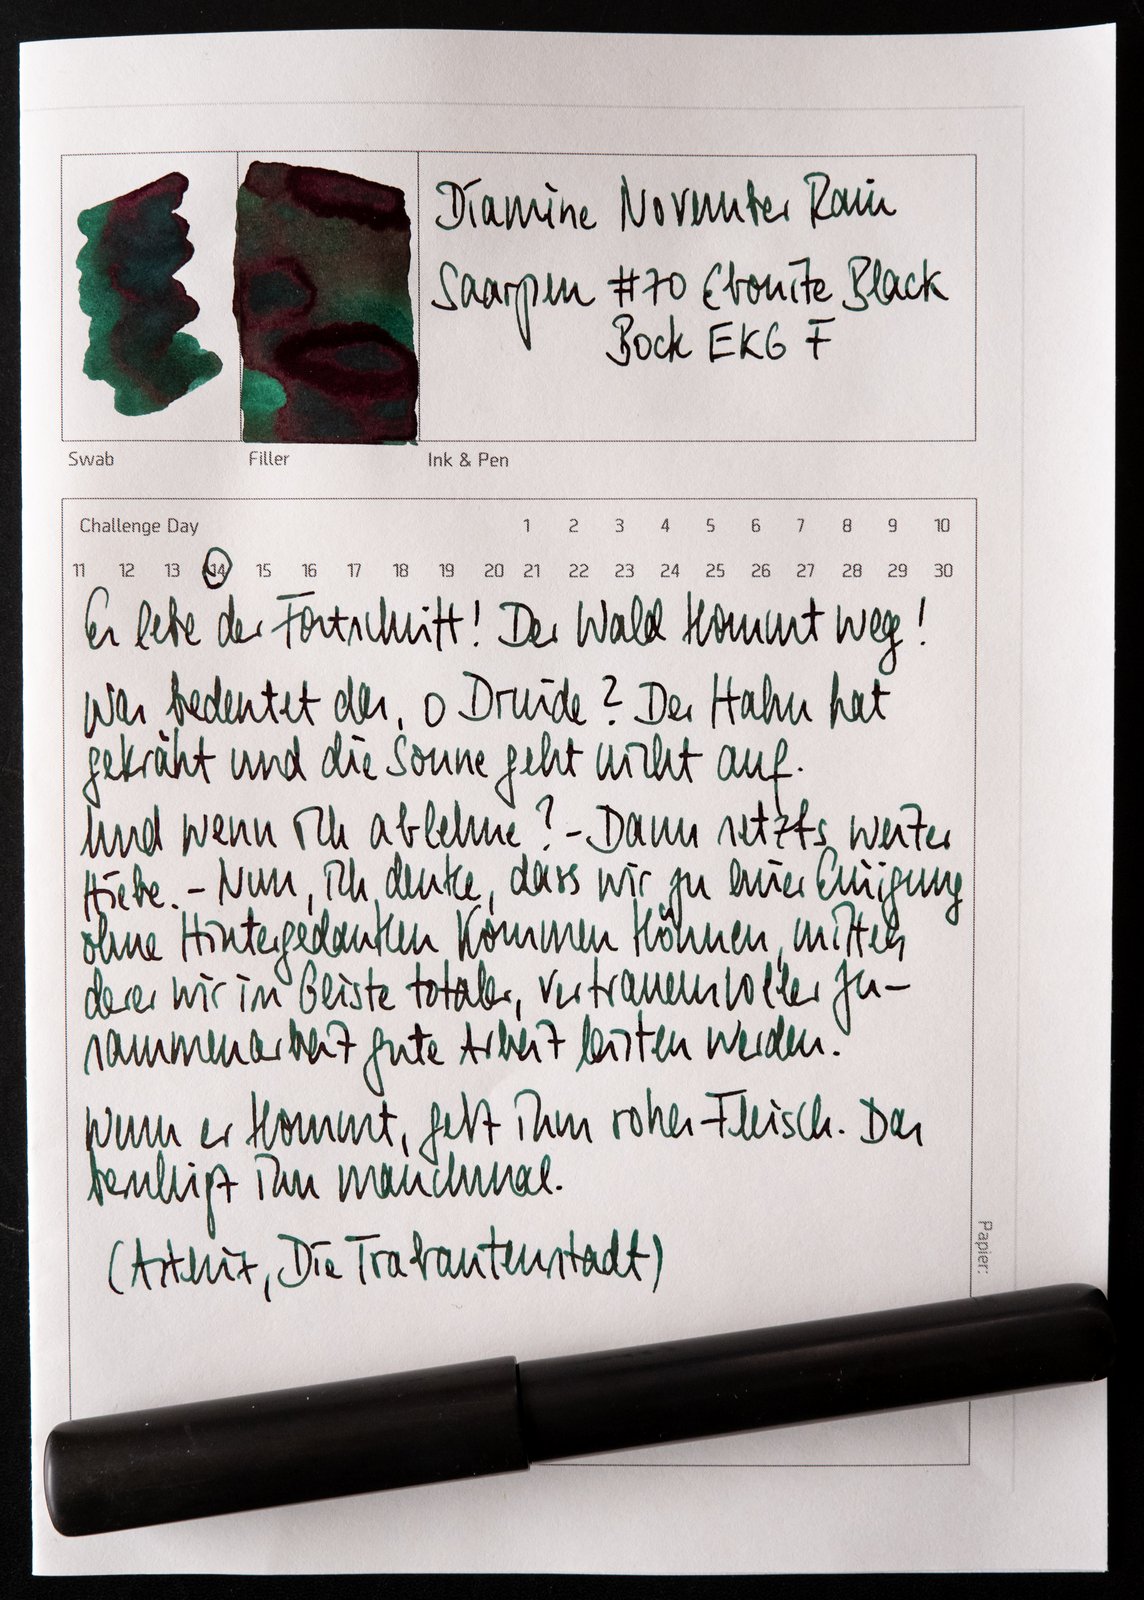 Diamine November Rain
Saarpen #70 Ebonite Black
Bock EKG F
Swab Filler Ink & Pen
Challenge Day 1 2 3 4 5 6 7 8 9 10
11 12 13 14 15 16 17 18 19 20 21 22 23 24 25 26 27 28 29 30
Es lebe der Fortschritt! Der Wald kommt weg!
Was bedeutet das, o Druide? Der Hahn hat
gekräht und die Sonne geht nicht auf.
Und wenn ich ablehne? - Dann setzts weiter
Hiebe. - Nun, ich denke, dass wir zu einer Einigung
ohne Hintergedanken kommen können, mittels
derer wir im Geiste totaler, vertrauensvoller Zu-
sammenarbeit gute Arbeit leisten werden.
Wenn er kommt, gebt ihm rohes Fleisch. Das
beruhigt ihn manchmal.
(Asterix, Die Trabantenstadt)
Papier: